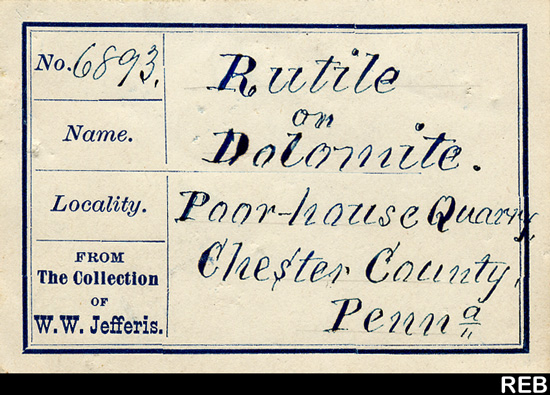 No. 6893.
Rutile
on
Name.
Dolomite.
Locality.
Poor-house Quarry,
Chester County,
Penna
FROM
The Collection
OF
W.W. Jefferis.
REB